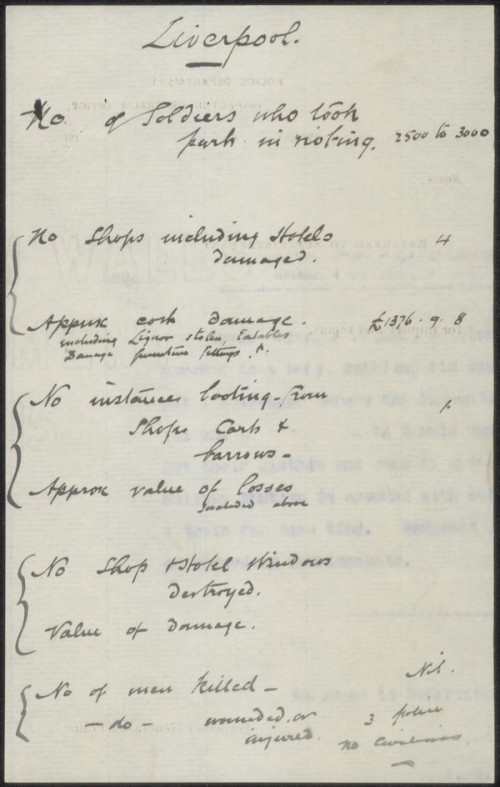 Liverpool.
No of Soldiers who took
part in rioting. 2500 to 3000
No Shops including Hotels 4
damaged.
Approx cost damage. £1376. 9. 8
including Liquor stolen, Eatables
Damage furniture fittings
No instances looting from
Shops Carts &
barrows -
Approx value of losses
Included above
No Shop & Hotel Windows
destroyed.
Value of damage.
No of men killed - Nil.
- do - wounded or 3 police
injured. no civilians